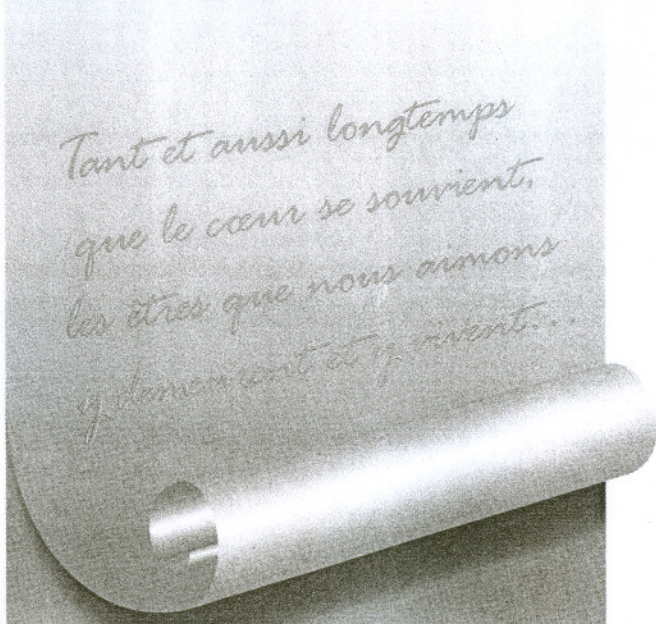 Tant et aussi longtemps
que le cœur se souvient,
les êtres que nous aimons
y demeurent et y vivent...